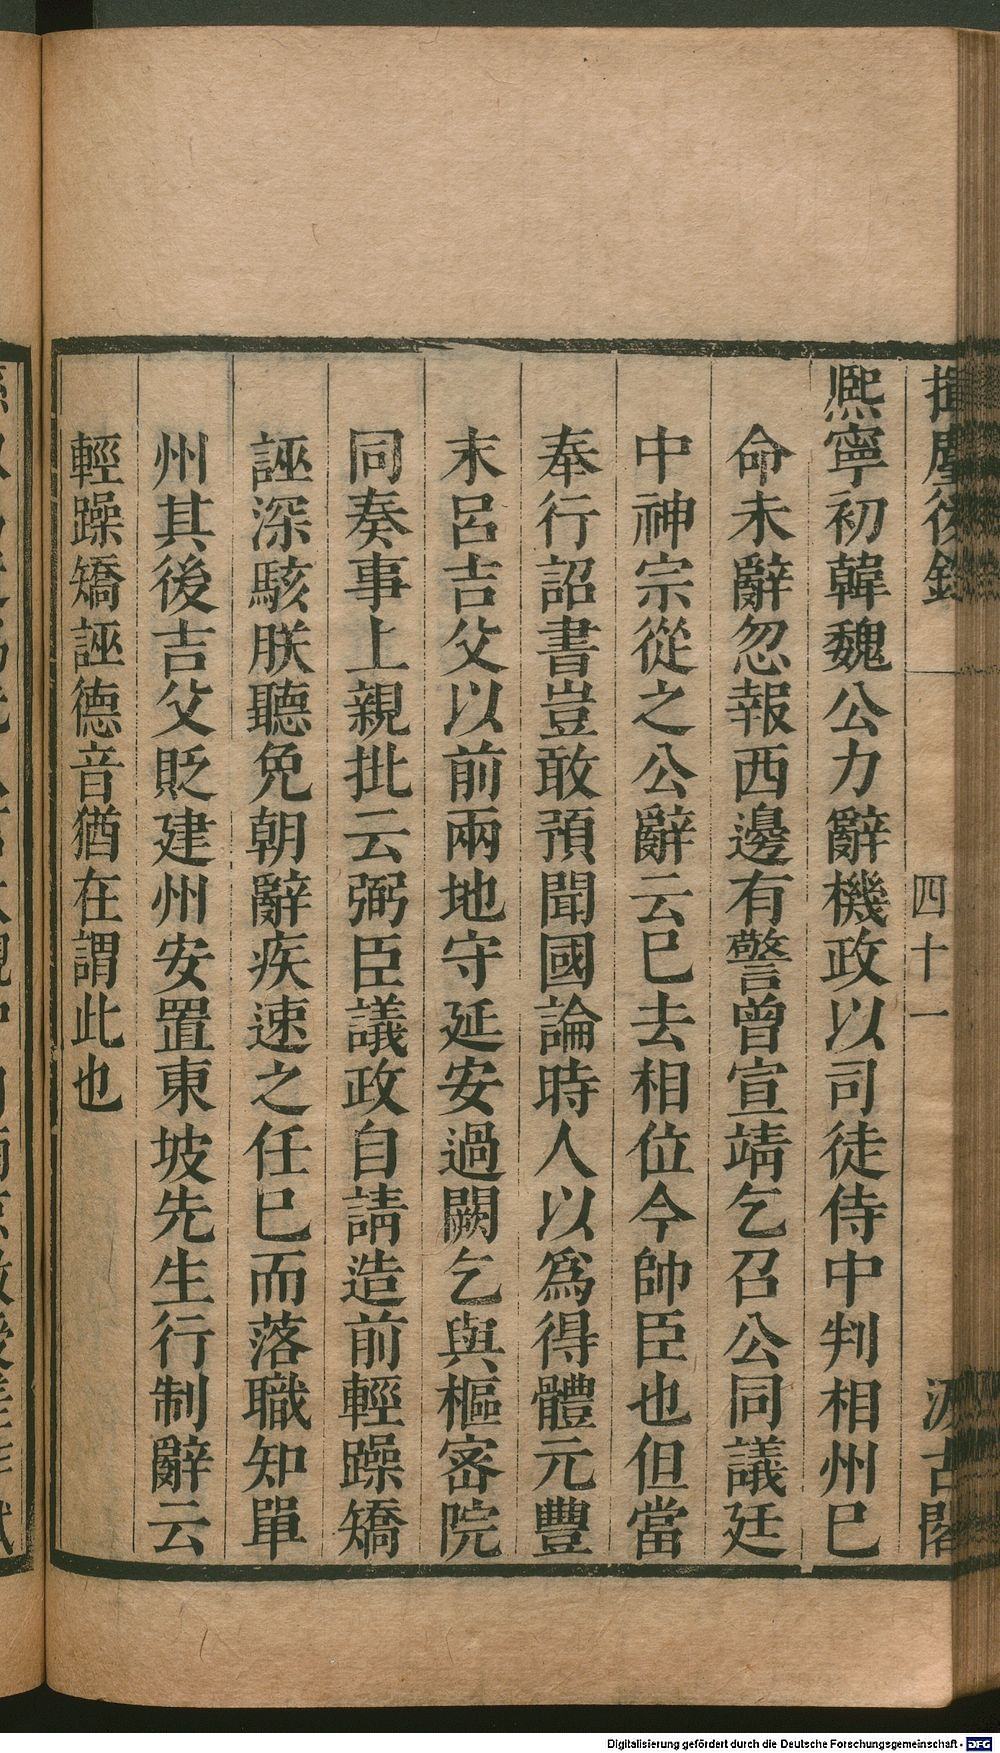 揮麈後錄
四十一
汲古閣
熙寧初韓魏公力辭機政以司徒侍中判相州巳
命未辭忽報西邊有警曾宣靖乞召公同議廷
中神宗從之公辭云巳去相位今帥臣也但當
奉行詔書豈敢預聞國論時人以爲得體元豐
末呂吉父以前兩地守延安過闕乞與樞宻院
同奏事上親批云弼臣議政自請造前輕躁矯
誣深駭朕聽免朝辭疾速之任巳而落職知單
州其後吉父貶建州安置東坡先生行制辭云
輕躁矯誣德音猶在謂此也
Digitalisierung gefördert durch die Deutsche Forschungsgemeinschaft - DFG